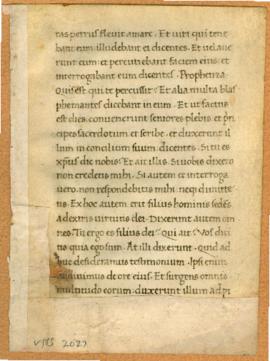 tas petrus flevit amare. Et viri qui tene
bant eum illudebant ei cedentes. Et velave
runt eum et percutiebant faciem eius et
interrogabant eum dicentes. Prophetiza
Quis est qui te percussit. Et alia multa blas
phemantes dicebant in eum. Et ut factus
est dies convenerunt seniores plebis et prin
cipes sacerdotum et scribe et duxerunt il
lum in concilium suum dicentes. Si tu es
xp̄us dic nobis. Et ait illis. Si vobis dixero
non credetis mihi. Si autem et interroga
vero. non respondebitis mihi neq; dimitte
tis. Ex hoc autem erit filius hominis sedens
a dextris virtutis dei. Dixerunt autem om
nes. Tu ergo es filius dei. Qui ait. Vos dici
tis quia ego sum. At illi dixerunt. Quid ad
huc desideramus testimonium. Ipsi enim
audivimus de ore eius. Et surgens omnis
multitudo eorum. duxerunt illum ad pi
VMS 2027